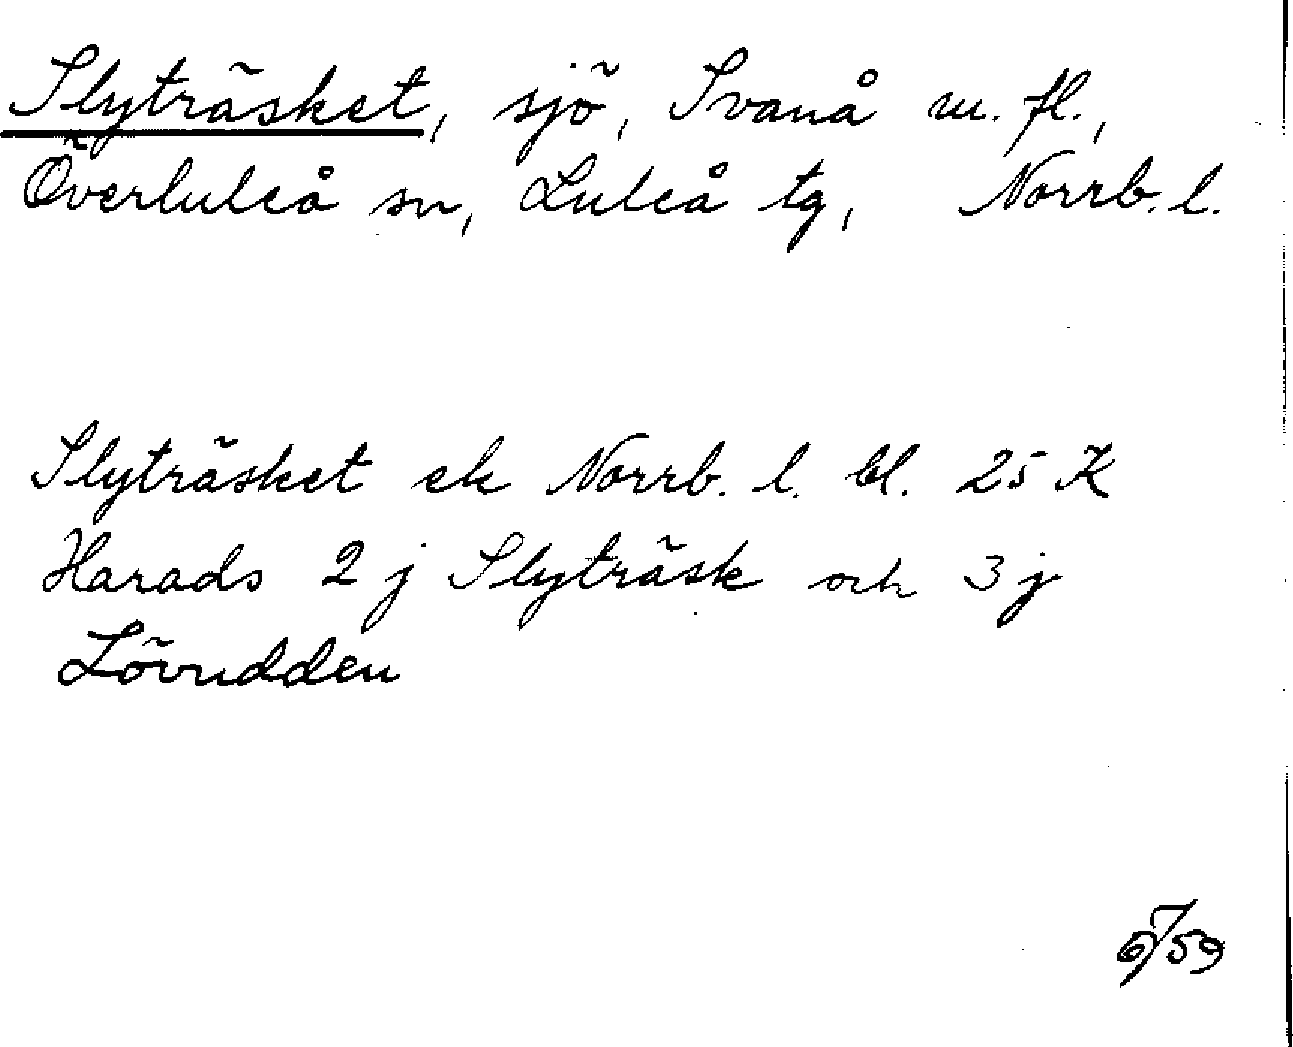 Slyträsket, sjö, Svanå m. fl.,
Överluleå sn, Luleå tg, Norrb. l.
Slyträsket ek Norrb. l. bl. 25 K
Harads 2 j Slyträsk och 3 j
Lövudden